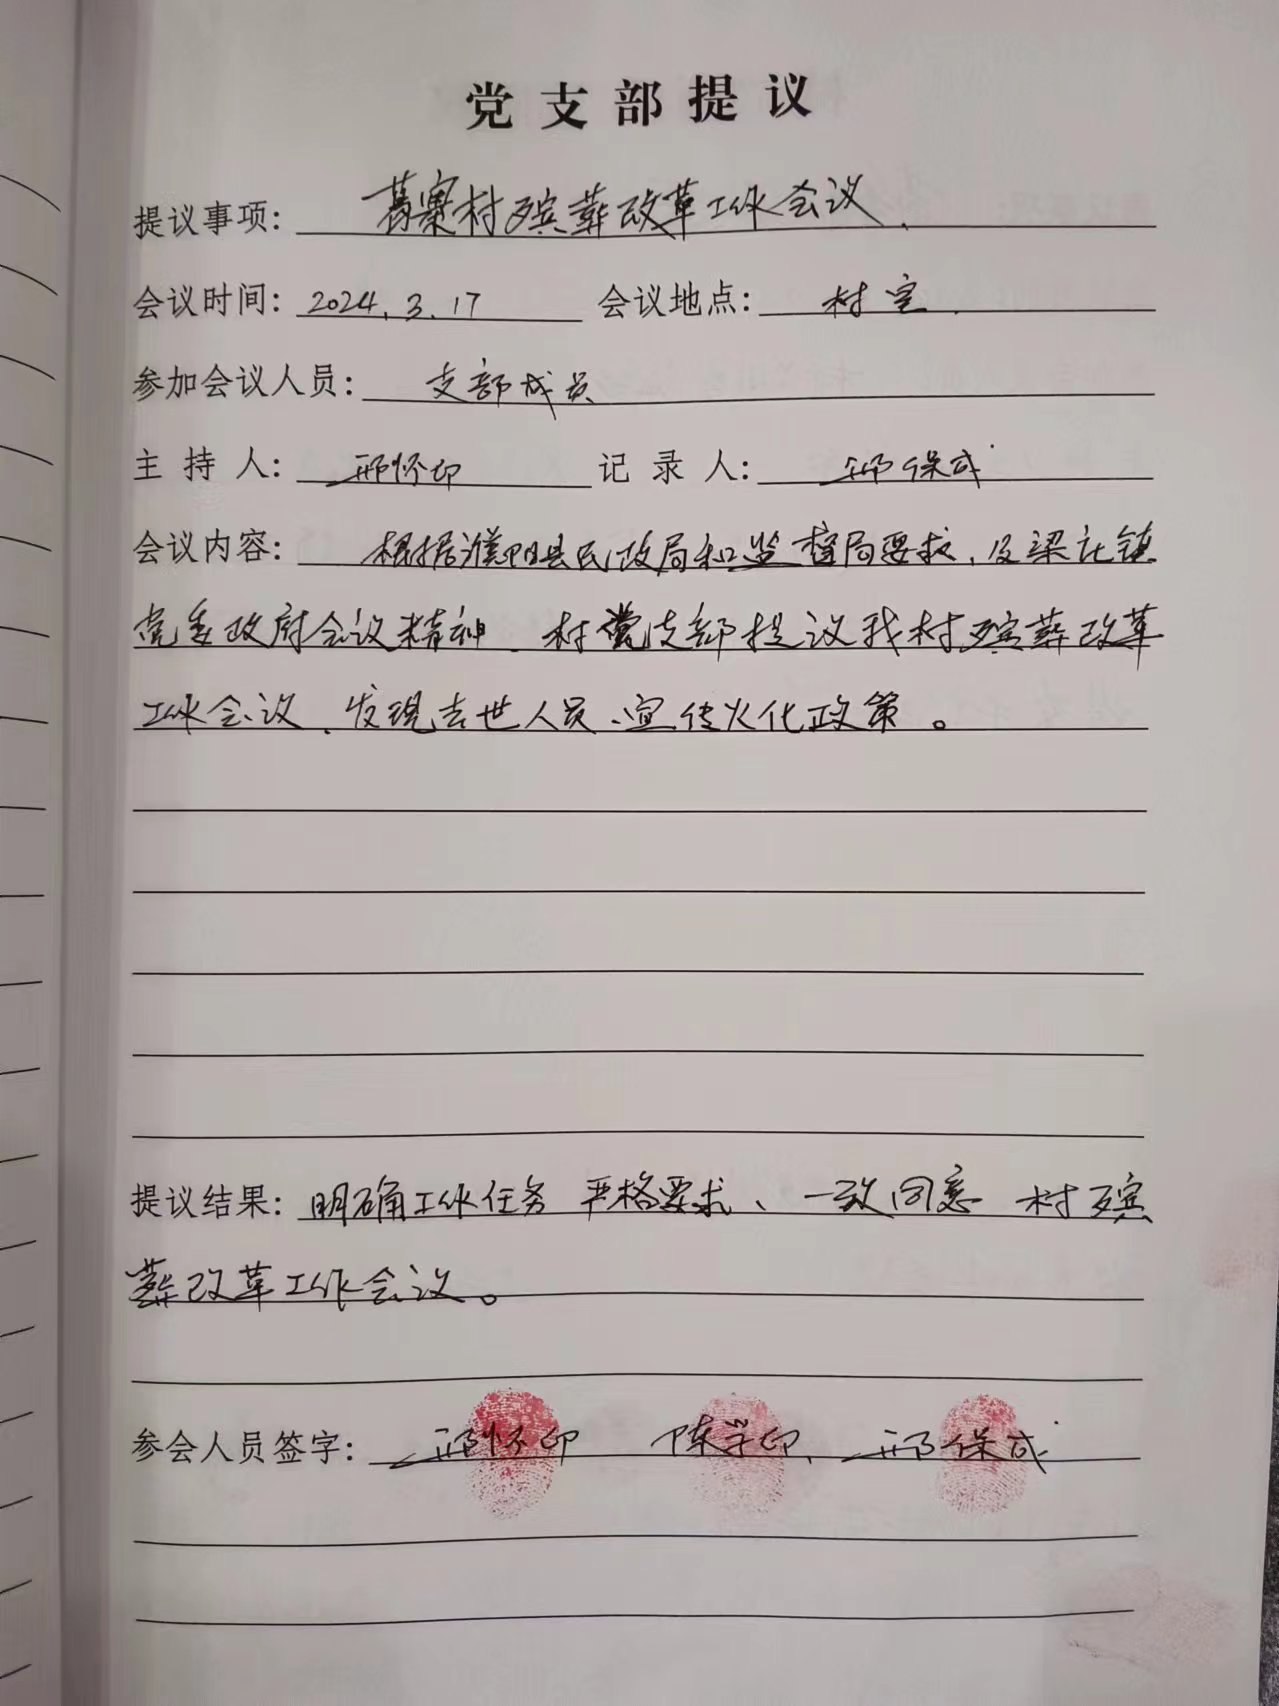 党支部提议
提议事项：葛寨村殡葬改革工作会议.
会议时间：2024.3.17 会议地点：村室.
参加会议人员：支部成员
主持人：邢怀印 记录人：邢保成
会议内容：根据濮阳县民政局和监督局要求，及梁庄镇
党委政府会议精神，村党支部提议我村殡葬改革
工作会议，发现去世人员、宣传火化政策。
提议结果：明确工作任务 严格要求、一致同意 村殡
葬改革工作会议。
参会人员签字：邢怀印 陈学印 邢保成